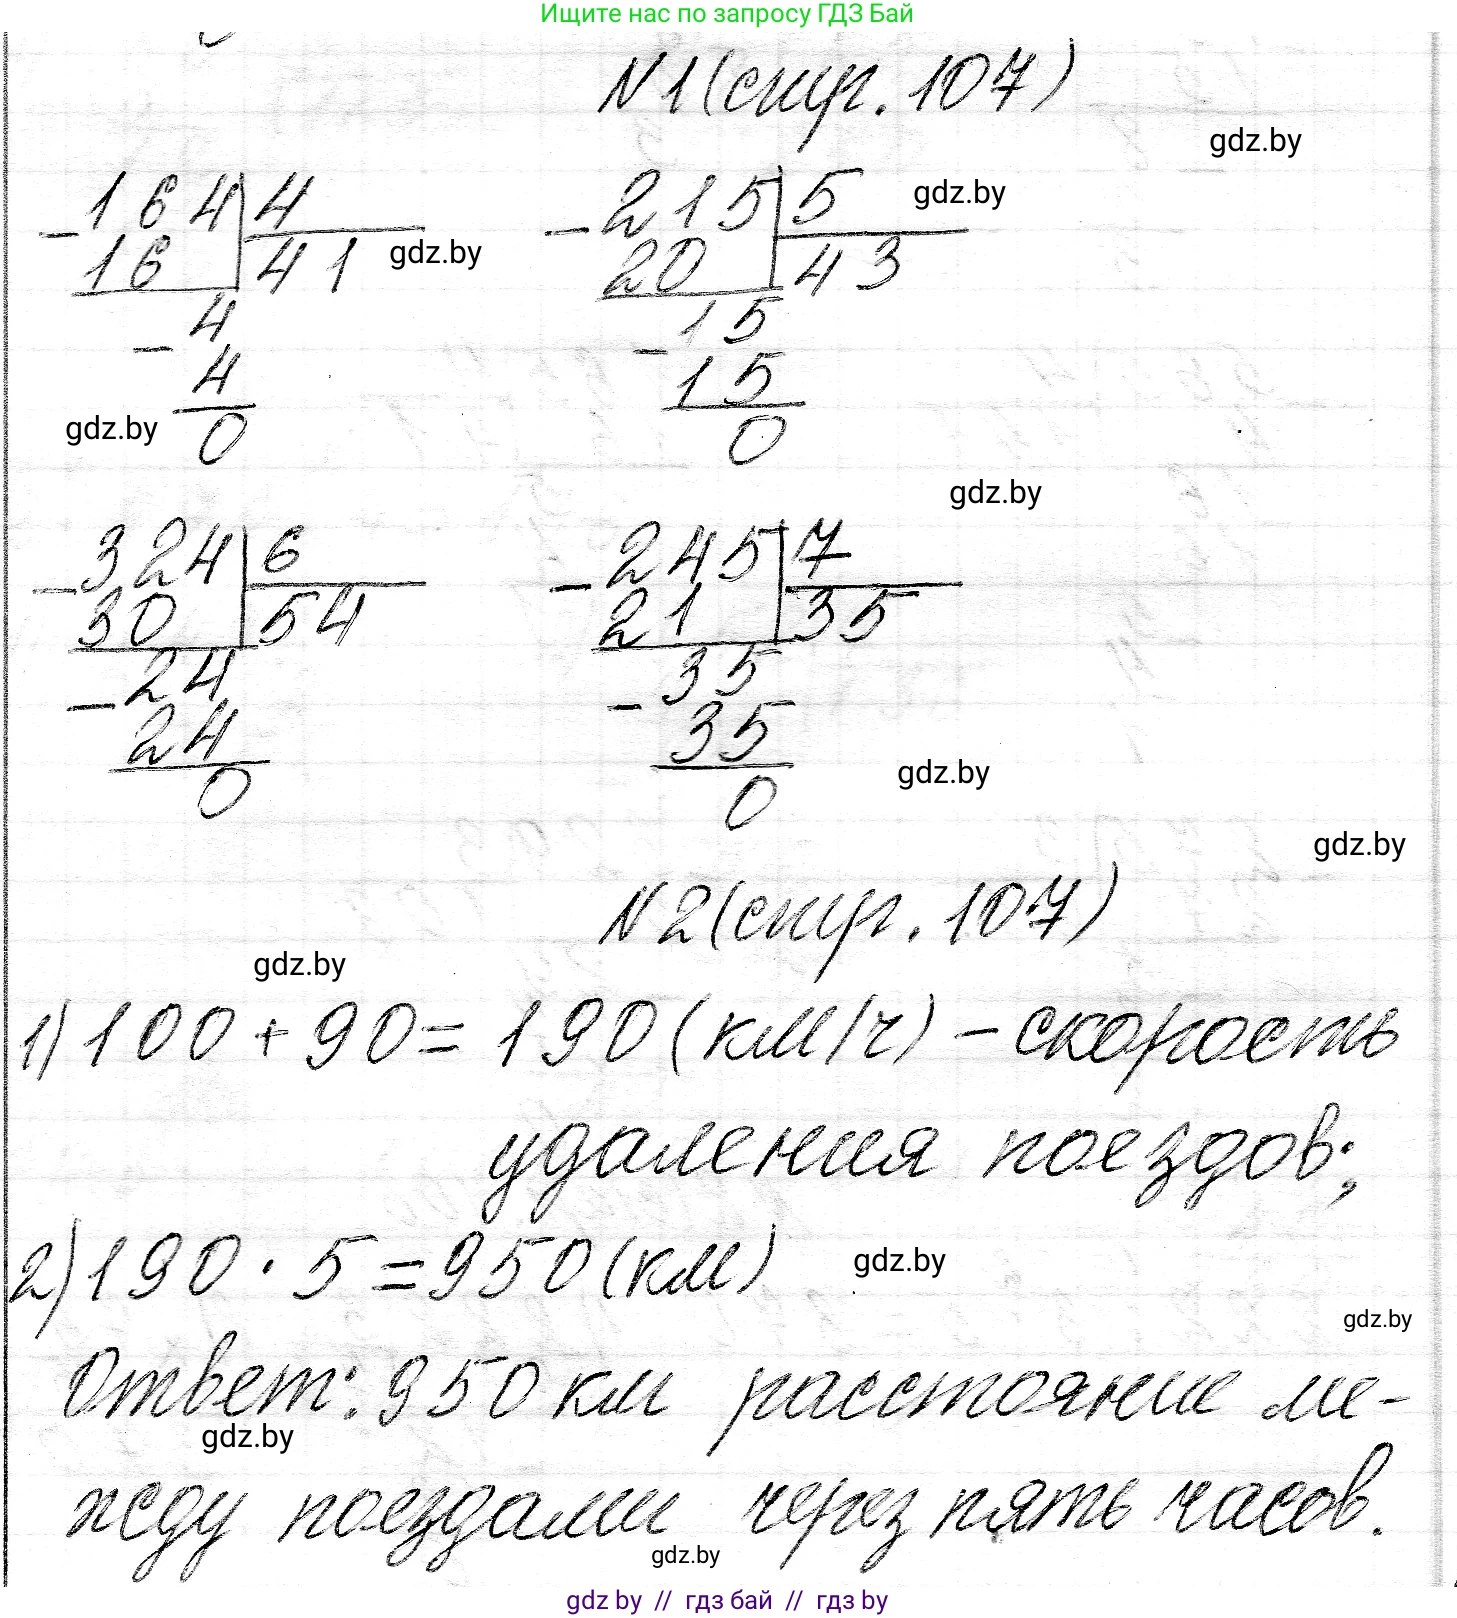 Ищите нас по запросу ГДЗ Бай
N1(стр. 107)
gdz.by
164 4 215 5 gdz.by
- 16 41 gdz.by - 20 43
- 4 - 15
4 15
gdz.by 0 0
gdz.by
324 6 245 7
- 30 54 - 21 35
- 24 - 35
24 35
0 0
gdz.by
gdz.by
N2(стр. 107)
gdz.by
1) 100 + 90 = 190 (км/ч) - скорость
удаления поездов;
2) 190 · 5 = 950 (км) gdz.by
gdz.by
Ответ: 950 км расстояние ме-
gdz.by
жду поездами через пять часов.
gdz.by
gdz by // гдз бай // гдз by